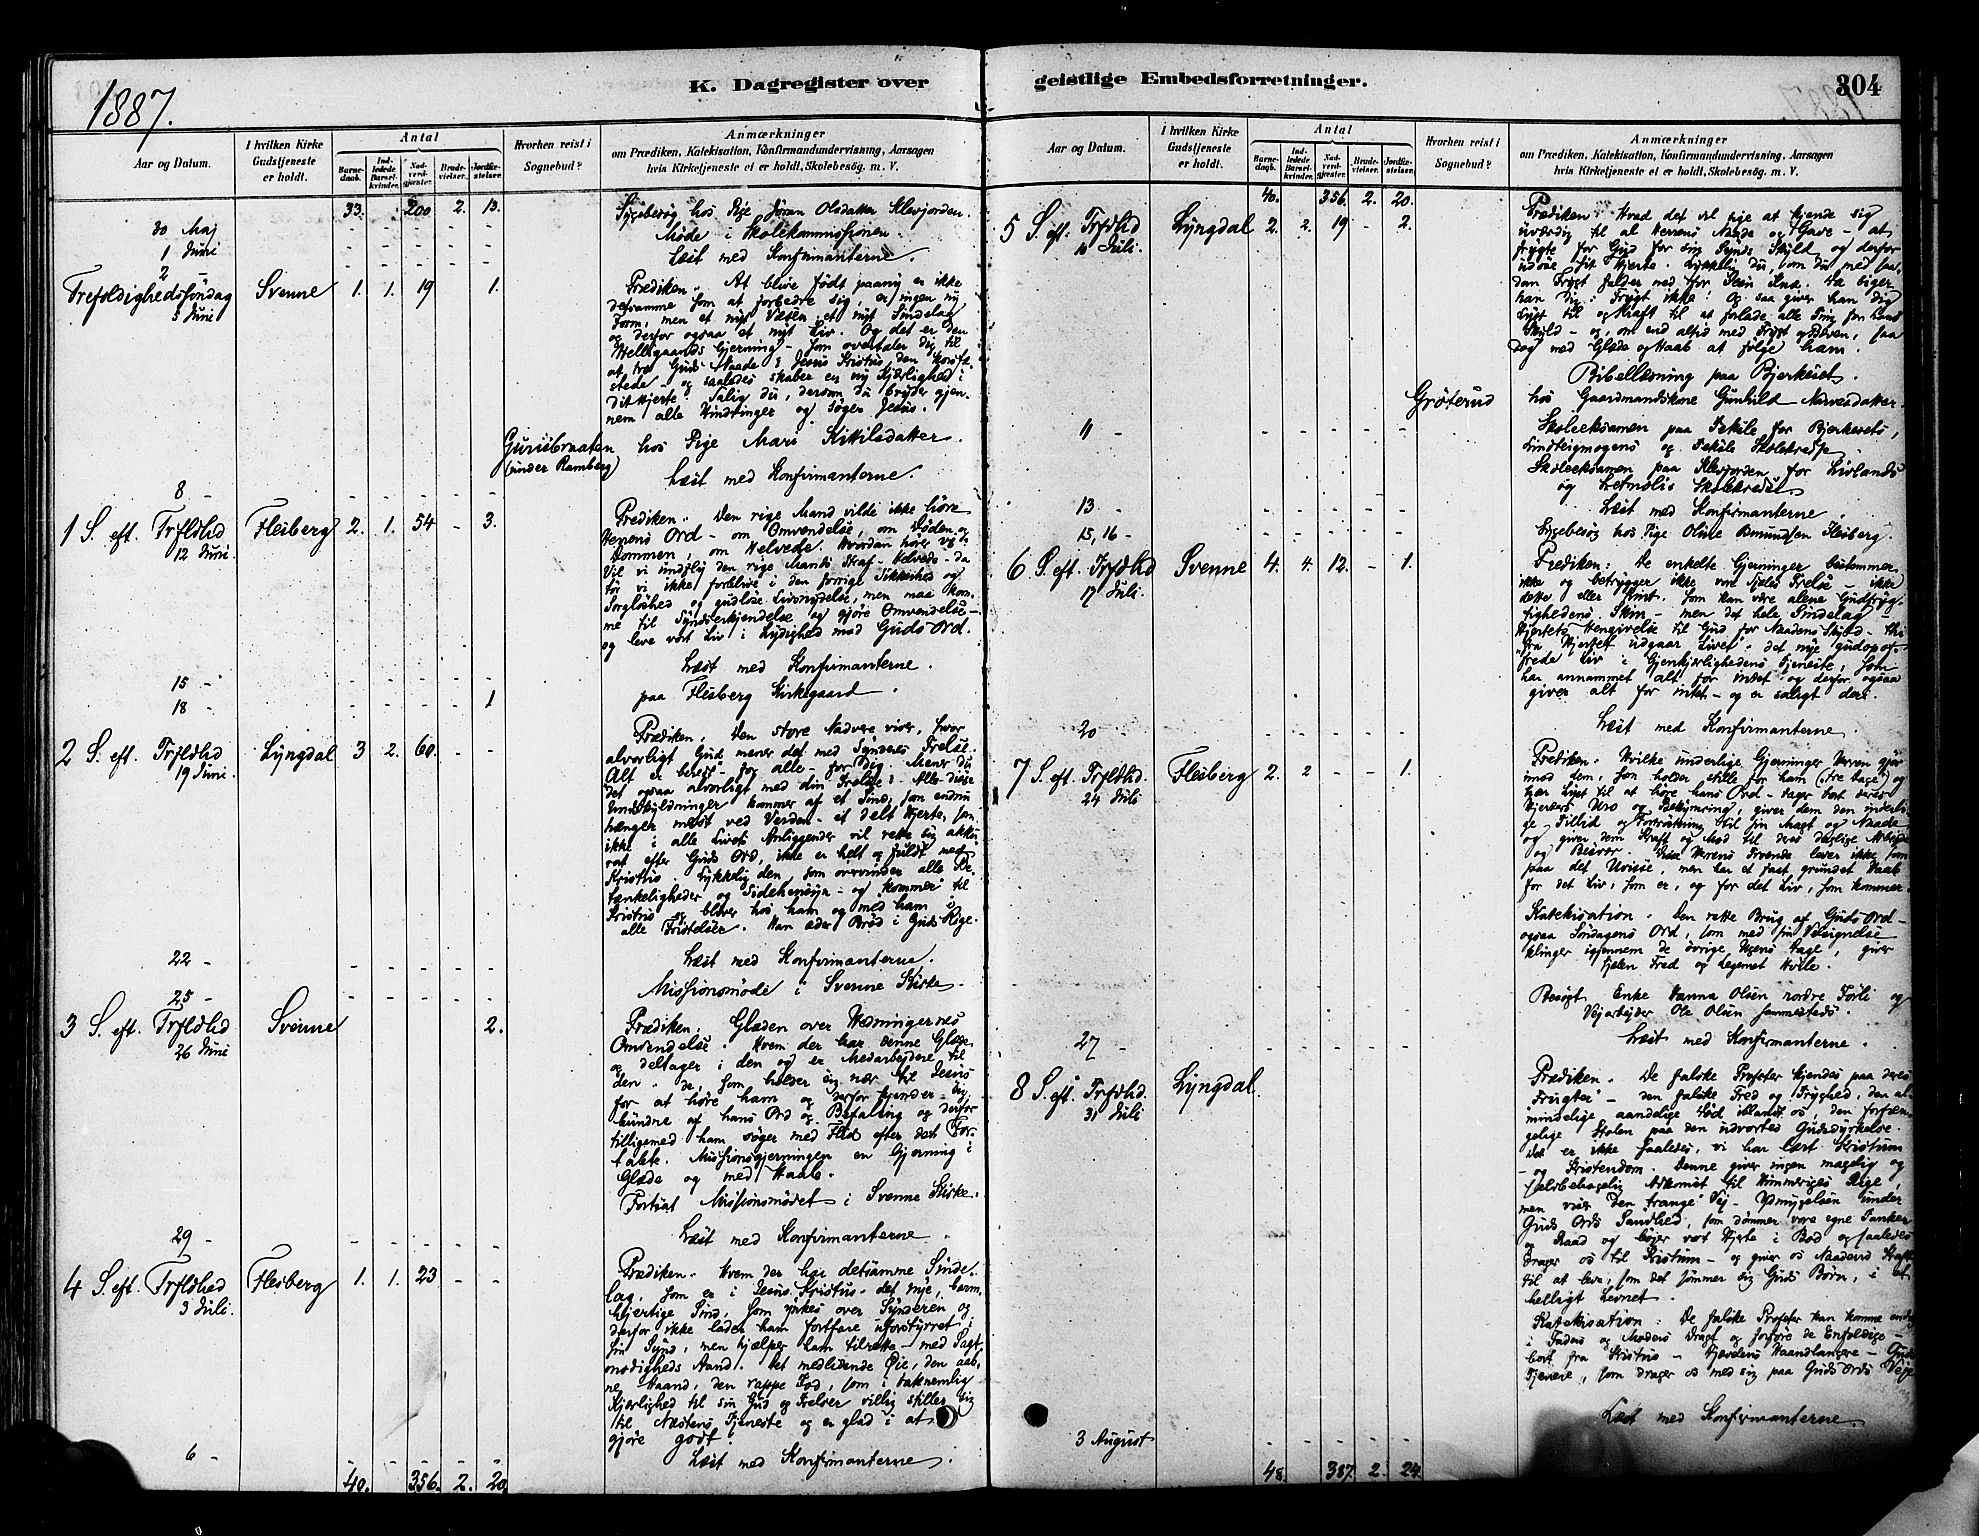 1887.
K. Dagregister over
Aar og Datum.
I hvilken Kirke Gudstjeneste er holdt.
Antal
Barnedaab.
Indledede Barselkvinder.
Nadverdgjester.
Brudevielser.
Jordfæstelser.
Hvorhen reist i Sognebud?
Anmærkninger
om Prædiken, Katekisation, Konfirmandundervisning, Aarsagen
hvis Kirketjeneste ei er holdt, Skolebesøg. m. V.
33. 200 2. 13.
30 Maj Sygebesøg hos Pige Jøran Olsdatter Klevjorden.
1 Juni Møde i Skolekommissionen.
2 - Læst med Konfirmanterne.
Trefoldighedssøndag Svenne 1. 1. 19 1.
5 Juni
Prædiken. At blive født paany er ikke
detsamme som at forbedre sig, er ingen ny
Form, men et nyt Væsen, et nyt Sindelag
og derfor ogsaa et nyt Liv. Og det er den
Helligaands Gjerning - som overtaler dig til
at tro Guds Naade i Jesus Kristus den Korsfæ-
stede - og saaledes skaber en ny Kjærlighed i
dit Hjerte. Salig du, dersom du bryder gjen-
nem alle Hindringer og søger Jesus.
Gurisbraaten (under Ramberg) hos Pige Mari Kittilsdatter.
8 - Læst med Konfirmanterne.
1 S. eft. Trfldhd Flesberg 2. 1. 54 - 3.
12 Juni
Prædiken. Den rige Mand vilde ikke høre
Herrens Ord - om Omvendelse, om Døden og
Dommen, om Helvede. Hvordan hører vi det
Vil vi undfly den rige Mands Straf - Helvede - da
tør vi ikke forblive i den forrige Sikkerhed og
Sorgløshed og gudløse Livsnydelse, men maa kom-
me til Synderkjendelse og gjøre Omvendelse -
og leve vort Liv i Lydighed mod Guds Ord.
15 - Læst med Konfirmanterne.
18 - 1 paa Flesberg Kirkegaard.
2 S. eft. Trfldhd Lyngdal 3 2. 60. - -
19 Juni.
Prædiken. Den store Nadvere viser, hvor
alvorligt Gud mener det med Synderes Frelse.
Alt er beredt - for alle - for dig. Mener du
det ogsaa alvorligt med din Frelse? Alle disse
Undskyldninger kommer af et Sind, som endnu
hænger mest ved Verden - et delt Hjerte, som
ikke i alle Livets Anliggender vil rette sig akku-
rat efter Guds Ord, ikke er helt og fuldt med
Kristus. Lykkelig den, som overvinder alle Be-
tænkeligheder og Sidehensyn - og kommer til
Kristus og bliver hos ham og med ham i
alle Fristelser. Han æder Brød i Guds Rige.
22 - Læst med Konfirmanterne.
25 - Missionsmøde i Svenne Kirke.
3 S. eft. Trfldhd Svenne 2.
26 Juni
Prædiken. Glæden over Hedningernes
Omvendelse. Hvem der har denne Glæde,
og deltager i den og er Medarbejdere til
den. De, som holder sig nær til Jesus
for at høre ham og derfor kjender sig
bundne af hans Ord og Befaling og derfor
tilligemed ham søger med Flid efter det For-
tabte. Missionsgjerningen en Gjerning i
Glæde og med Haab.
Fortsat Missionsmødet i Svenne Kirke.
29 - Læst med Konfirmanterne.
4 S. eft. Trfldhd Flesberg 1. 1. 23 - -
3 Juli.
Prædiken. Hvem der har detsamme Sinde-
lag, som er i Jesus Kristus - det nye, barm-
hjertige Sind, som ynkes over Synderen og
derfor ikke lader ham fortfare uforstyrret i
sin Synd, men hjælper ham tilrette - med Sagt-
modigheds Aand. Det medlidende Øie, den aab-
ne Haand, den rappe Fod, som i taknemlig
Kjærlighed til sin Gud og Frelser villig stiller sig
til Næstens Tjeneste og er glad i at
gjøre godt.
6 - Læst med Konfirmanterne.
40. 356. 2. 20
geistlige Embedsforretninger.
304
Aar og Datum.
I hvilken Kirke Gudstjeneste er holdt.
Antal
Barnedaab.
Indledede Barselkvinder.
Nadverdgjester.
Brudevielser.
Jordfæstelser.
Hvorhen reist i Sognebud?
Anmærkninger
om Prædiken, Katekisation, Konfirmandundervisning, Aarsagen
hvis Kirketjeneste ei er holdt, Skolebesøg. m. V.
40. 356. 2. 20.
5 S. eft. Trfldhd Lyngdal 2. 2. 19 - 2.
10 Juli.
Prædiken. Hvad det vil sige at kjende sig
uværdig til al Herrens Naade og Gave - at
frygte for Gud for sin Synds Skyld og derfor
udøse sit Hjerte. Lykkelig du, om du med saa-
dan Frygt falder ned for Jesu Knæ. Da siger
han dig: Frygt ikke! Og saa giver han dig
Lyst til og Kraft til at forlade alle Ting for hans
Skyld - og, om end altid med Frygt og Bæven, saa
dog med Glæde og Haab at følge ham.
Bibellæsning paa Bjerkeset.
Grøterud hos Gaardmandskone Gunhild Narvesdatter.
11 - Skoleeksamen paa Tekile for Bjerkesets,
Lindteigmogens og Tekile Skolekredse.
Skoleeksamen paa Klevjorden for Livlands
og Letmolis Skolekredse.
13 - Læst med Konfirmanterne.
15, 16 - Sygebesøg hos Pige Oline Asmundsen Flesberg.
6 S. eft. Trfldhd Svenne 4. 4. 12. - 1.
17 Juli.
Prædiken: De enkelte Gjerninger bestemmer
ikke og betrygger ikke vor Sjæls Frelse - ikke
dette eller hint, som kan være alene Gudfryg-
tighedens Skin - men det hele Sindelag -
Hjertets Hengivelse til Gud for Naadens Skyld - thi
"fra Hjertet udgaar Livet" - det nye gudopof-
frede Liv i Gjenkjærlighedens Tjeneste, som
har annammet alt for intet og derfor ogsaa
giver alt for intet - og er saligt deri.
20 - Læst med Konfirmanterne.
7 S. eft. Trfldhd. Flesberg 2. 2 - - 1.
24 Juli
Prædiken. Hvilke underlige Gjerninger Herren gjør
imod dem, som holder stille for ham (tre Dage) og
har Lyst til at høre hans Ord - tager bort deres
Hjerters Uro og Bekymring, giver dem den inderli-
ge Tillid og Fortrøstning til sin Magt og Naade
og giver dem Kraft og Mod til deres daglige Møie
og Besvær. Disse Herrens Troende lever ikke som
paa det Uvisse, men har et fast grundet Haab
for det Liv, som er, og for det Liv, som kommer.
Katekisation. Den rette Brug af Guds Ord -
ogsaa Søndagens Ord, som med sin Velsignelse
klinger igjennem de øvrige Ugens Dage, giver
Sjælen Fred og Legemet Hvile.
Besøgt Enke Hanna Olsen nordre Foslì og
Vejarbejder Ole Olsen Jammesteds.
27 - Læst med Konfirmanterne.
8 S. eft. Trfldhd. Lyngdal
31 Juli
Prædiken. De falske Profeter kjendes paa deres
"Frugter" - den falske Fred og Tryghed, den al-
mindelige aandelige Død iblandt os, den forfæn-
gelige Stolen paa den udvortes Gudsdyrkelse.
Det er ikke saaledes, vi har lært Kristum
- og Kristendom. Denne giver ingen magelig og
selvbehagelig Adkomst til Himmeriges Rige,
men viser "den trange" Vej - Ydmygelsen under
Guds Ords Sandhed, som dømmer vore egne Tanker
og Raad og bøier vort Hjerte i Bod og saaledes
drager os til Kristum - og giver os Naadens Kraft
til at leve, som det sømmer sig Guds Børn, i et
helligt Levnet.
Katekisation: De falske Profeter kan komme endog
i Faders og Moders Dragt og forføre de Enfoldige -
bort fra Kristus - Djævelens Haandlangere - Guds
Tjenere, som drager os med sig paa Guds Ords Veje
3 August Læst med Konfirmanterne.
48. 387. 2. 24.